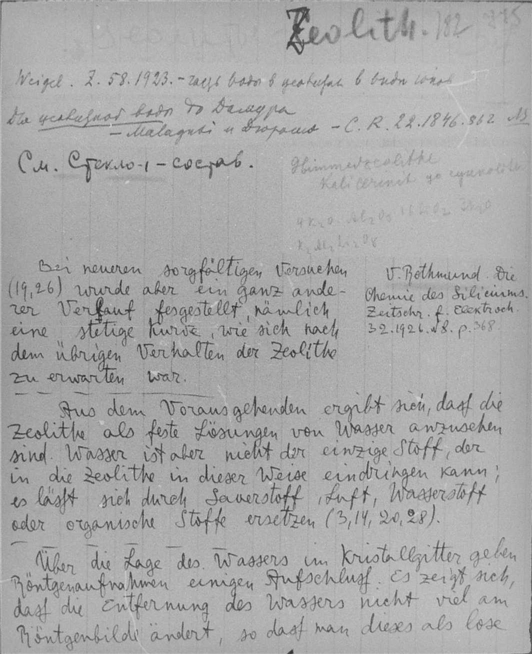 Zeolith. 182
Weigel. Z. 58. 1923. – воды в цеолитах в виде
Для цеолитной воды до Дамура
– Malaguti и Дюроше – C. R. 22. 1846. 862
См. Стекло-1 – состав.
Bei neueren sorgfältigen Versuchen
(19,26) wurde aber ein ganz ande-
rer Verlauf fesgestellt, nämlich
eine stetige Kurve, wie sich nach
dem übrigen Verhalten der Zeolithe
zu erwarten war.
V. Rothmund. Die
Chemie des Siliciums.
Zeitschr. f. Elektroch.
32. 1926. N8. p. 368
Aus dem Vorausgehenden ergibt sich, dass die
Zeolithe als feste Lösungen von Wasser anzusehen
sind. Wasser ist aber nicht der einzige Stoff, der
in die Zeolithe in dieser Weise eindringen kann;
es lässt sich durch Sauerstoff, Luft, Wasserstoff
oder organische Stoffe ersetzen (3,14,20,28).
Über die Lage des Wassers im Kristallgitter geben
Röntgenaufnahmen einigen Aufschluss. Es zeigt sich,
dass die Entfernung des Wassers nicht viel am
Röntgenbilde ändert, so dass man dieses als lose